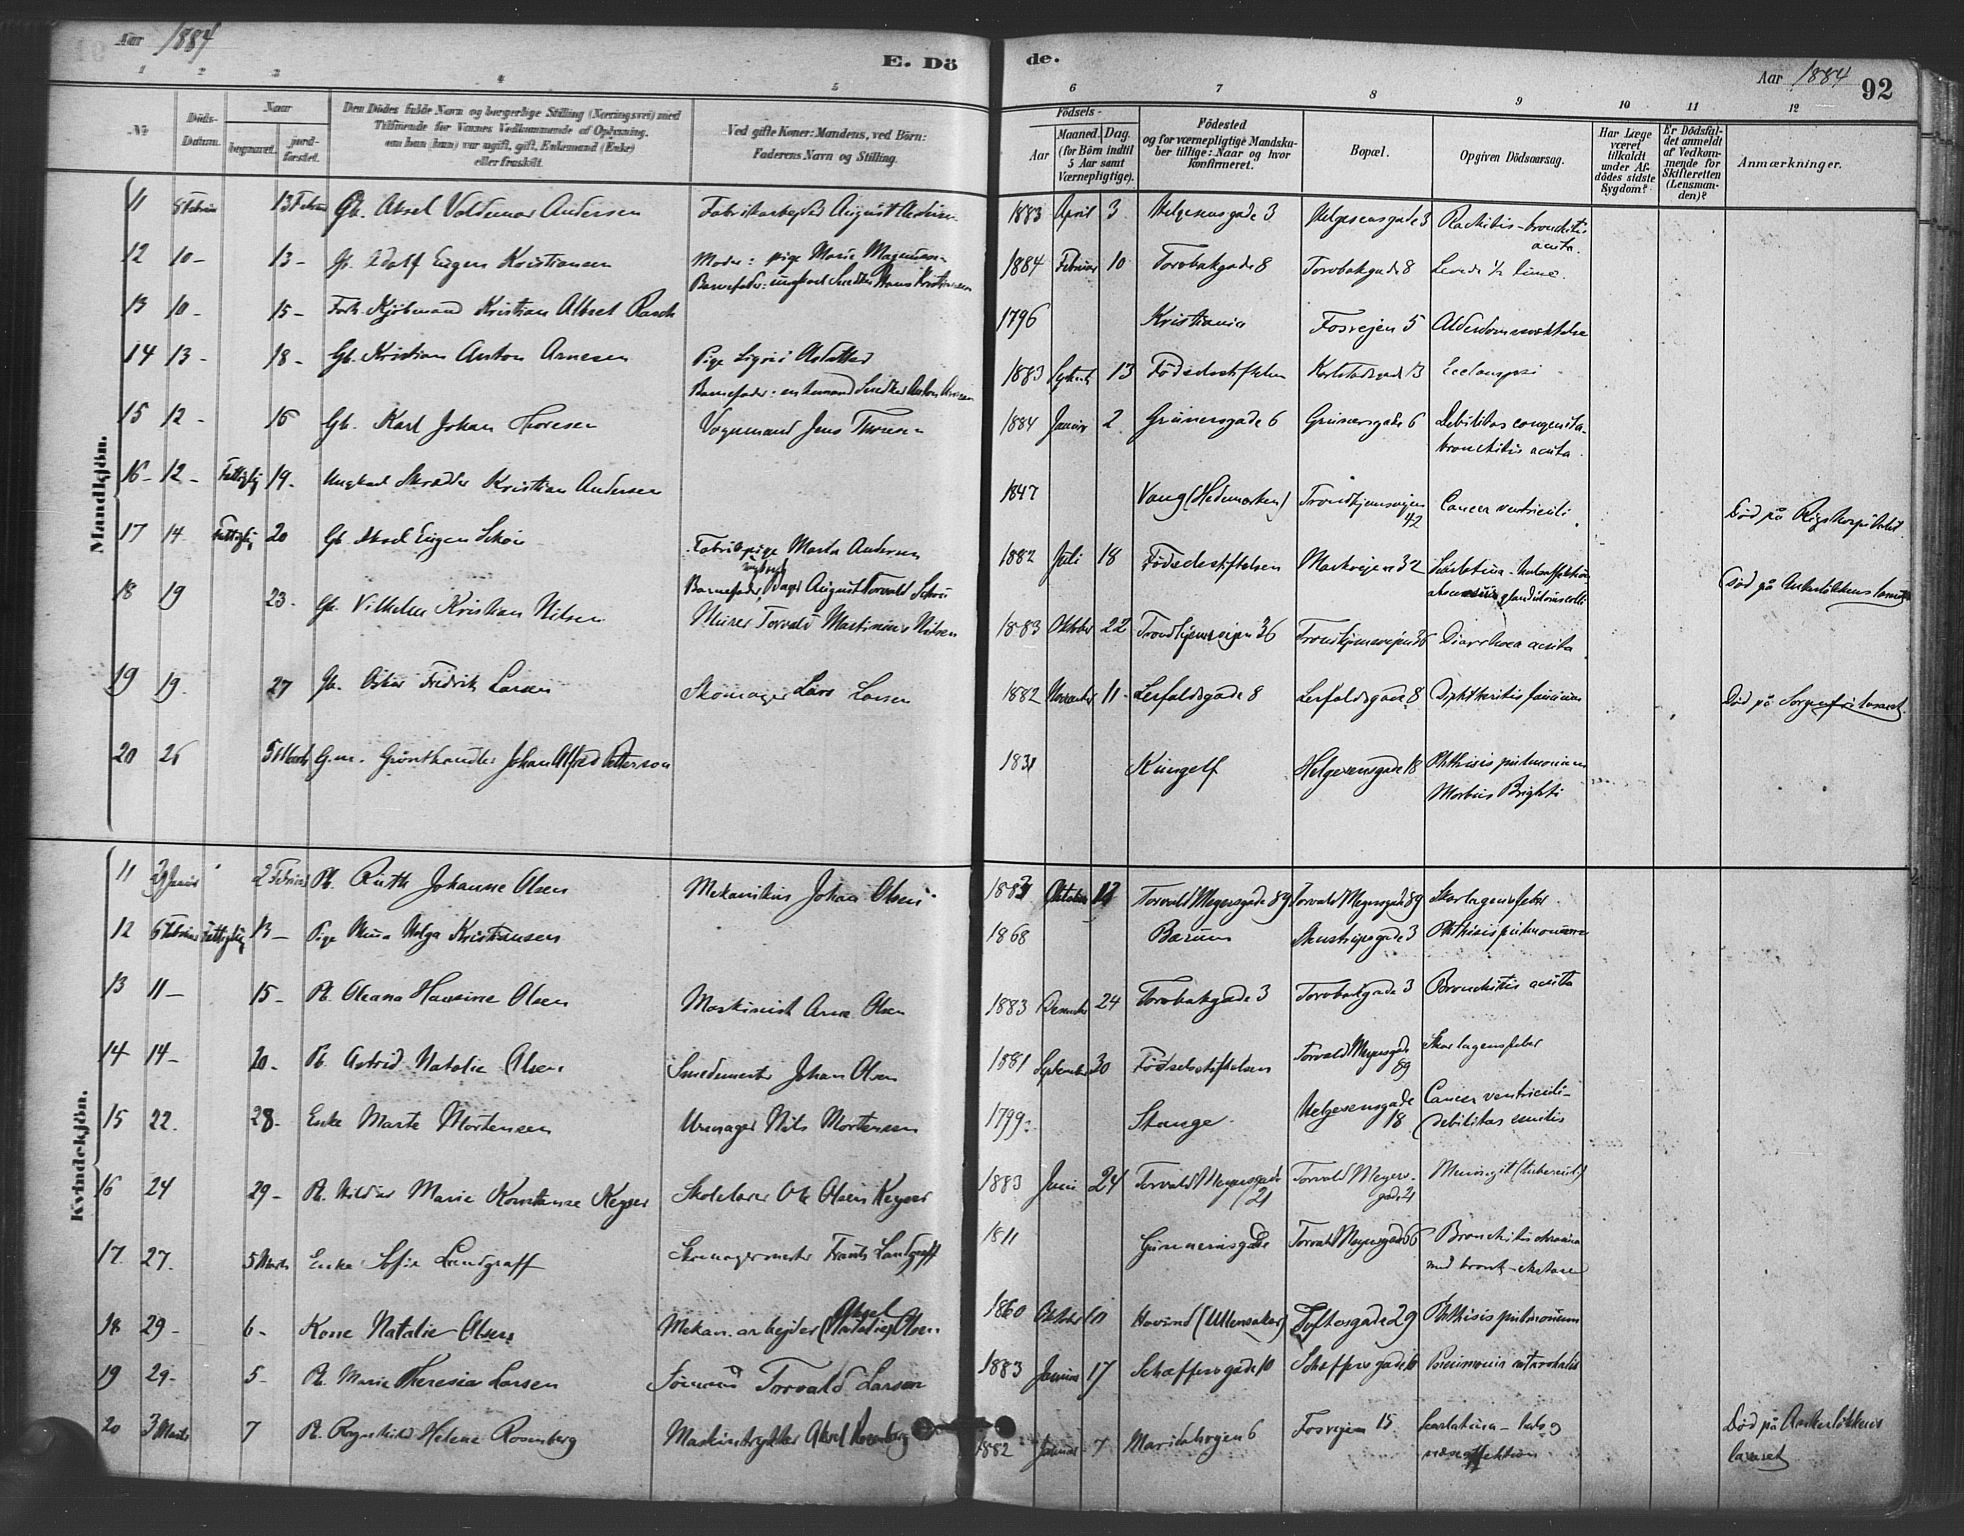 Aar 1884
E. Dö
de.
Aar 1884
92
1 2 3 4 5 6 7 8 9 10 11 12
No
Döds-Datum.
Naar
begravet.
jord-fæstet.
Den Dödes fulde Navn og borgerlige Stilling (Næringsvei) med
Tilföiende for Voxnes Vedkommende af Oplysning,
om han (hun) var ugift, gift, Enkemand (Enke)
eller fraskilt.
Ved gifte Koner: Mandens, ved Börn:
Faderens Navn og Stilling.
Födsels-
Aar
Maaned.
Dag.
(for Börn indtil
5 Aar samt
Værnepligtige).
Födested
og for værnepligtige Mandska-
ber tillige: Naar og hvor
konfirmeret.
Bopæl.
Opgiven Dödsaarsag.
Har Læge
været
tilkaldt
under Af-
dödes sidste
Sygdom?
Er Dödsfal-
det anmeldt
af Vedkom-
mende for
Skifteretten
(Lensman-
den)?
Anmærkninger.
Mandkjön.
11 13 Gb. Aksel Valdemar Andersen Fabrikarbejder August Andersen 1883 April 3 Helgesensgade 3 Helgesensgade 3 Rachitis - bronchitis
acuta.
12 10- 13- Gb. Adolf Eugen Kristiansen Moder: pige Marie
Barnefader: ungkarl Smed Hans Kristiansen 1884 Februar 10 Torvbakgade 8 Torvbakgade 8 Levede ½ time.
13 10- 15- Forh. Kjöbmand Kristian Albret Rasch 1796 Kristiania Fosvejen 5 Alderdomssvækkelse
14 13- 18- Gb. Kristian Anton Arnesen Pige Sigrid
Barnefader: enkemand Smed Anton Arnesen 1883 13 Födselsstiftelsen 3 Eclampsi
15 12- 16 Gb. Karl Johan Thoresen Vognmand Jens Thoresen 1884 Januar 2. Grünersgade 6 Grünersgade 6 Debilitas congenita-
bronchitis acuta.
16- 12- Fattiglig 19- Ungkarl Skrædder Kristian Andersen 1847 Vang (Hedemarken) Trondhjemsvejen
42 Cancer ventriculi Död på Rigshospitalet.
17 14 Fattiglig 20 Gb. Aksel Eugen Schöie Fabrikpige Marta Andersen
Barnefader August Torvald 1882 Juli 18 Födselsstiftelsen Markvejen 32 Scarlatina - Död på Ankerlökkens lazaret
18 19 23- Gb. Vilhelm Kristian Nilsen Murer Torvald Martinius Nilsen 1883 Oktober 22 Trondhjemsvejen 36 Trondhjemsvejen 36 Diarrhoea acuta.
19 19. 27 Gb. Oskar Fredrik Larsen Skomager Lars Larsen 1882 November 11- Lerfaldsgade 8 Lerfaldsgade 8 Diphtheritis faucium Död på Sorgenfri lazaret.
20 26 5 Marts G.m. Grönthandler Johan Alfred Petterson 1831 Kungelf Helgesensgade 18 Phthisis pulmonum
Morbus Brighti
Kvindekjön.
11 29 Januar 2 Februar Pb. Ruth Johanne Olsen Mekanikus Johan Olsen Oktober Torvald Meyersgade 89 Torvald Meyersgade 89 Skarlagensfeber
12 6 Februar Fattiglig 13- Pige Helga Kristiansen 1868 Bærum 3 Phthisis pulmonum
13 11- 15- Pb. Oleana Hansine Olsen Maskinist Arne Olsen 1883 December 24 Torvbakgade 3 Torvbakgade 3 Bronchitis acuta
14 14- 20- Pb. Astrid Natalie Olsen Smedemester Johan Olsen 1881 September 30 Födselsstiftelsen Torvald Meyersgade
89 Skarlagensfeber
15 22. 28- Enke Marte Mortensen Urmager Nils Mortensen 1799. Stange Helgesensgade
18 Cancer ventriculi-
Debilitas senilis
16 24 29- Pb. Marie Konstanse Keyser Skolelærer Ole Olsen Keyser 1883 Juni 24 Torvald Meyersgade
21 Torvald Meyers-
gade 21 Meningit (tubercul.)
17. 27. 5 Marts Enke Sofie Landgraff Skomagermester Frants Landgraff 1811 Torvald Meyersgade 66 Bronchitis chronica
med
18 29- 6- Kone Natalie Olsen Mekan. arbejder (Natalie) Aksel Olsen 1860 Oktober 10 Hovind (Ullensaker) Toftesgade 29 Phthisis pulmonum
19 29- 5- Pb. Marie Theresia Larsen Sömand Torvald Larsen 1883 Januar 17 Schæffersgade 10 Schæffersgade 10 Pneumonia catarrhalis
20 3 Marts 7 Pb. Ragnhild Helene Rosenberg Maskintrykker Aksel Rosenberg 1882 Januar 7 Maridalsvejen 6 Fosvejen 15 Scarlatina - hals og
næseaffektion Död på Ankerlökkens
lazaret